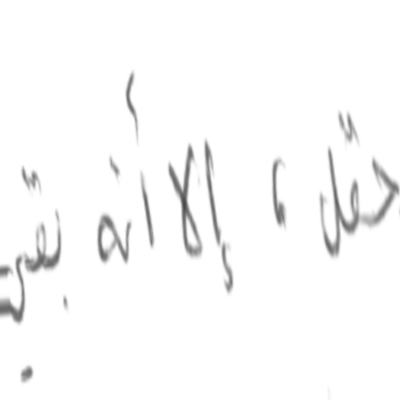 حقل ، إلا أنه بقي